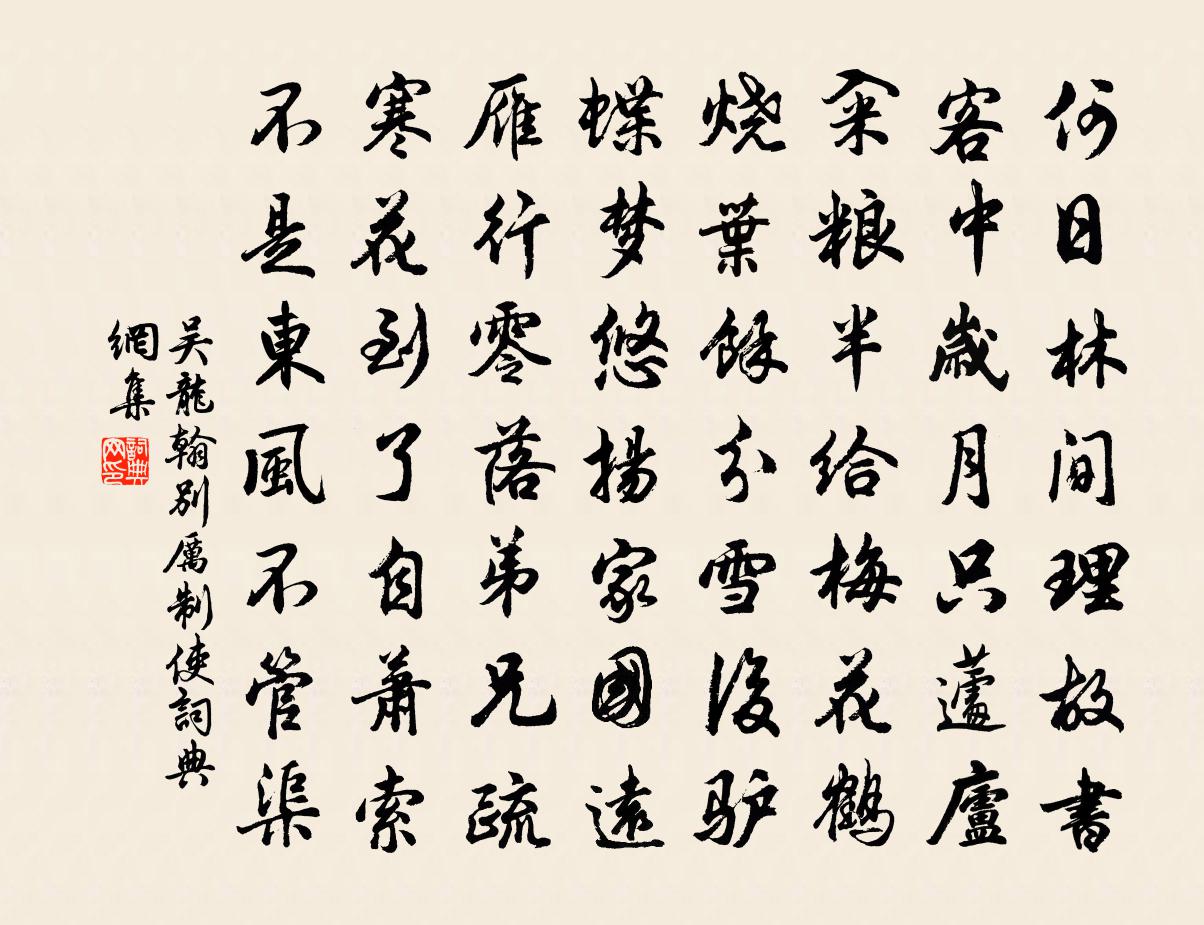 何日林间理故書
客中歲月只蘧廬
籴粮半给梅花鹤
烧葉餘分雪後驴
蝶梦悠揚家國遠
雁行零落弟兄疏
寒花到了自蕭索
不是東風不管渠
吴龍翰别厲制使詞典
網集
詞典网印